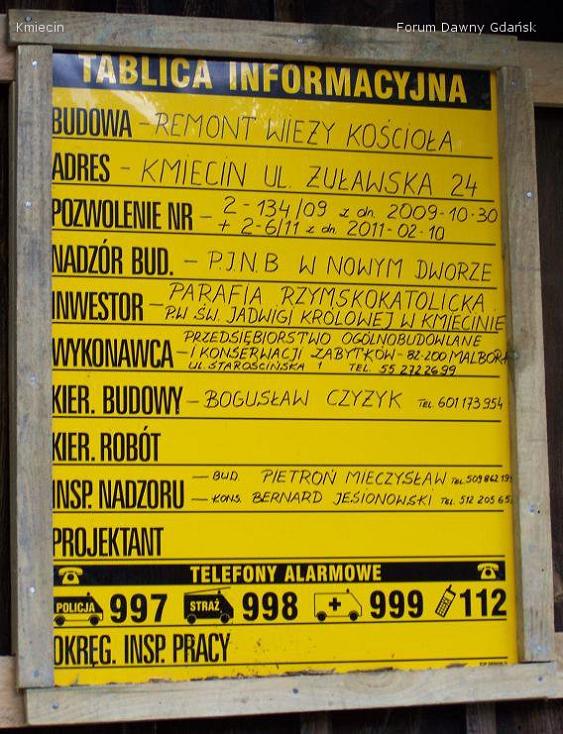 Kmiecin
Forum Dawny Gdańsk
TABLICA INFORMACYJNA
BUDOWA - REMONT WIEŻY KOŚCIOŁA
ADRES - KMIECIN UL. ŻUŁAWSKA 24
POZWOLENIE NR - 2-134/09 z dn. 2009-10-30
+ 2-6/11 z dn. 2011-02-10
NADZÓR BUD. - P.I.N.B W NOWYM DWORZE
INWESTOR - PARAFIA RZYMSKOKATOLICKA
P.W ŚW. JADWIGI KRÓLOWEJ W KMIECINIE
PRZEDSIĘBIORSTWO OGÓLNOBUDOWLANE
WYKONAWCA - I KONSERWACJI ZABYTKÓW - 82-200 MALBORK
UL. STAROŚCIŃSKA 1 TEL. 55 272 26 99
KIER. BUDOWY - BOGUSŁAW CZYZYK TEL. 601 173 954
KIER. ROBÓT
— BUD. PIETROŃ MIECZYSŁAW TEL. 509 862
INSP. NADZORU — KONS. BERNARD JESIONOWSKI TEL. 512 205
PROJEKTANT
TELEFONY ALARMOWE
POLICJA 997 STRAŻ 998 999 112
OKRĘG. INSP. PRACY